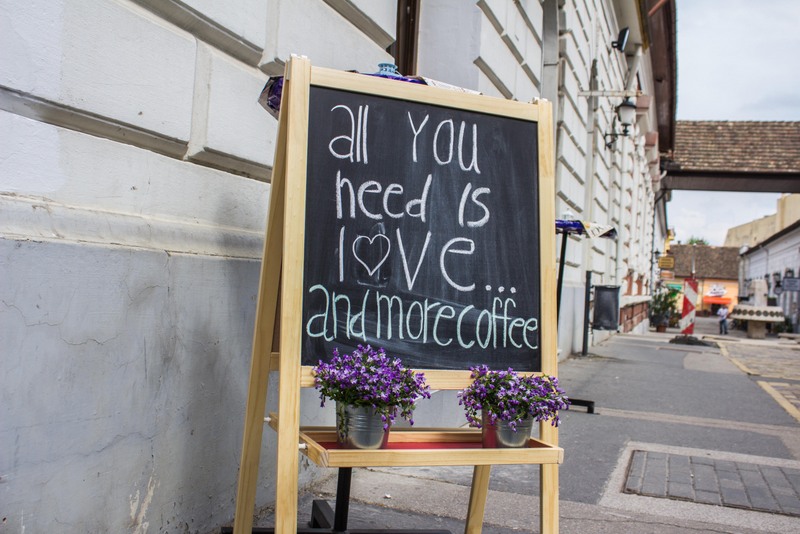 all you
need is
love...
and more coffee